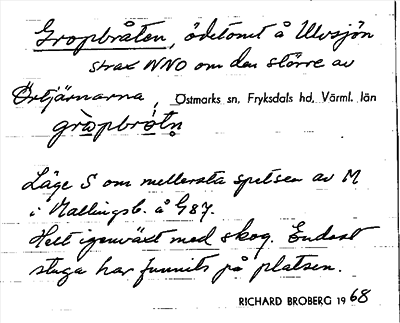 Gropbråten, ödetomt å Ulvsjön
strax NNO om den större av
Örtjärnarna, Östmarks sn, Fryksdals hd, Värml. län
gròpbròtn
Läge S om mellersta spetsen av M
i Mallingsb. å G87.
Helt igenväxt med skog. Endast
stuga har funnits på platsen.
RICHARD BROBERG 1968